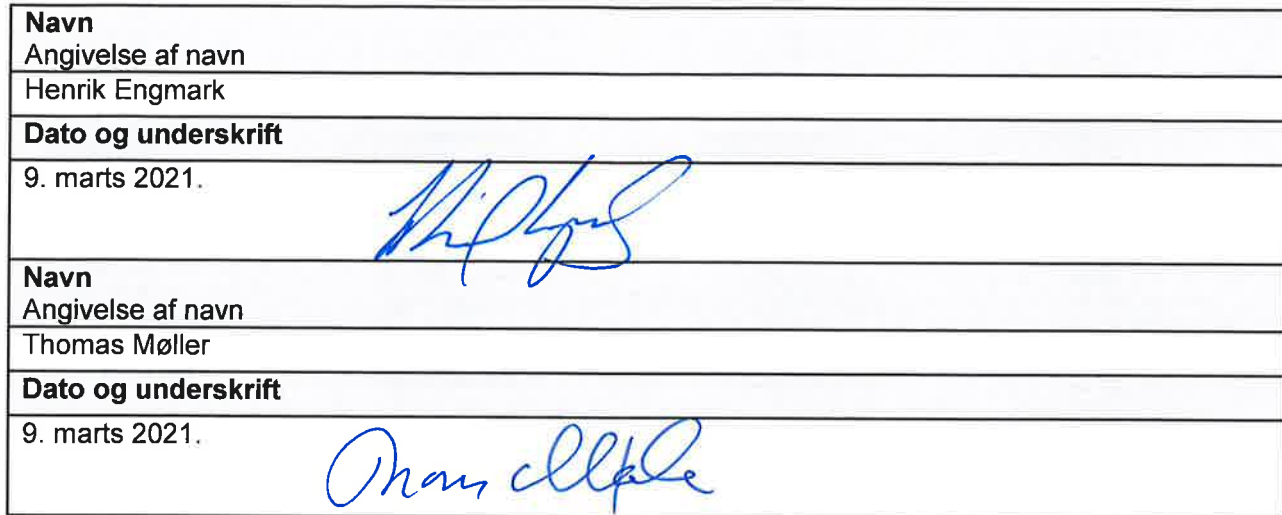 Navn
Angivelse af navn
Henrik Engmark
Dato og underskrift
9. marts 2021.
Navn
Angivelse af navn
Thomas Møller
Dato og underskrift
9. marts 2021.